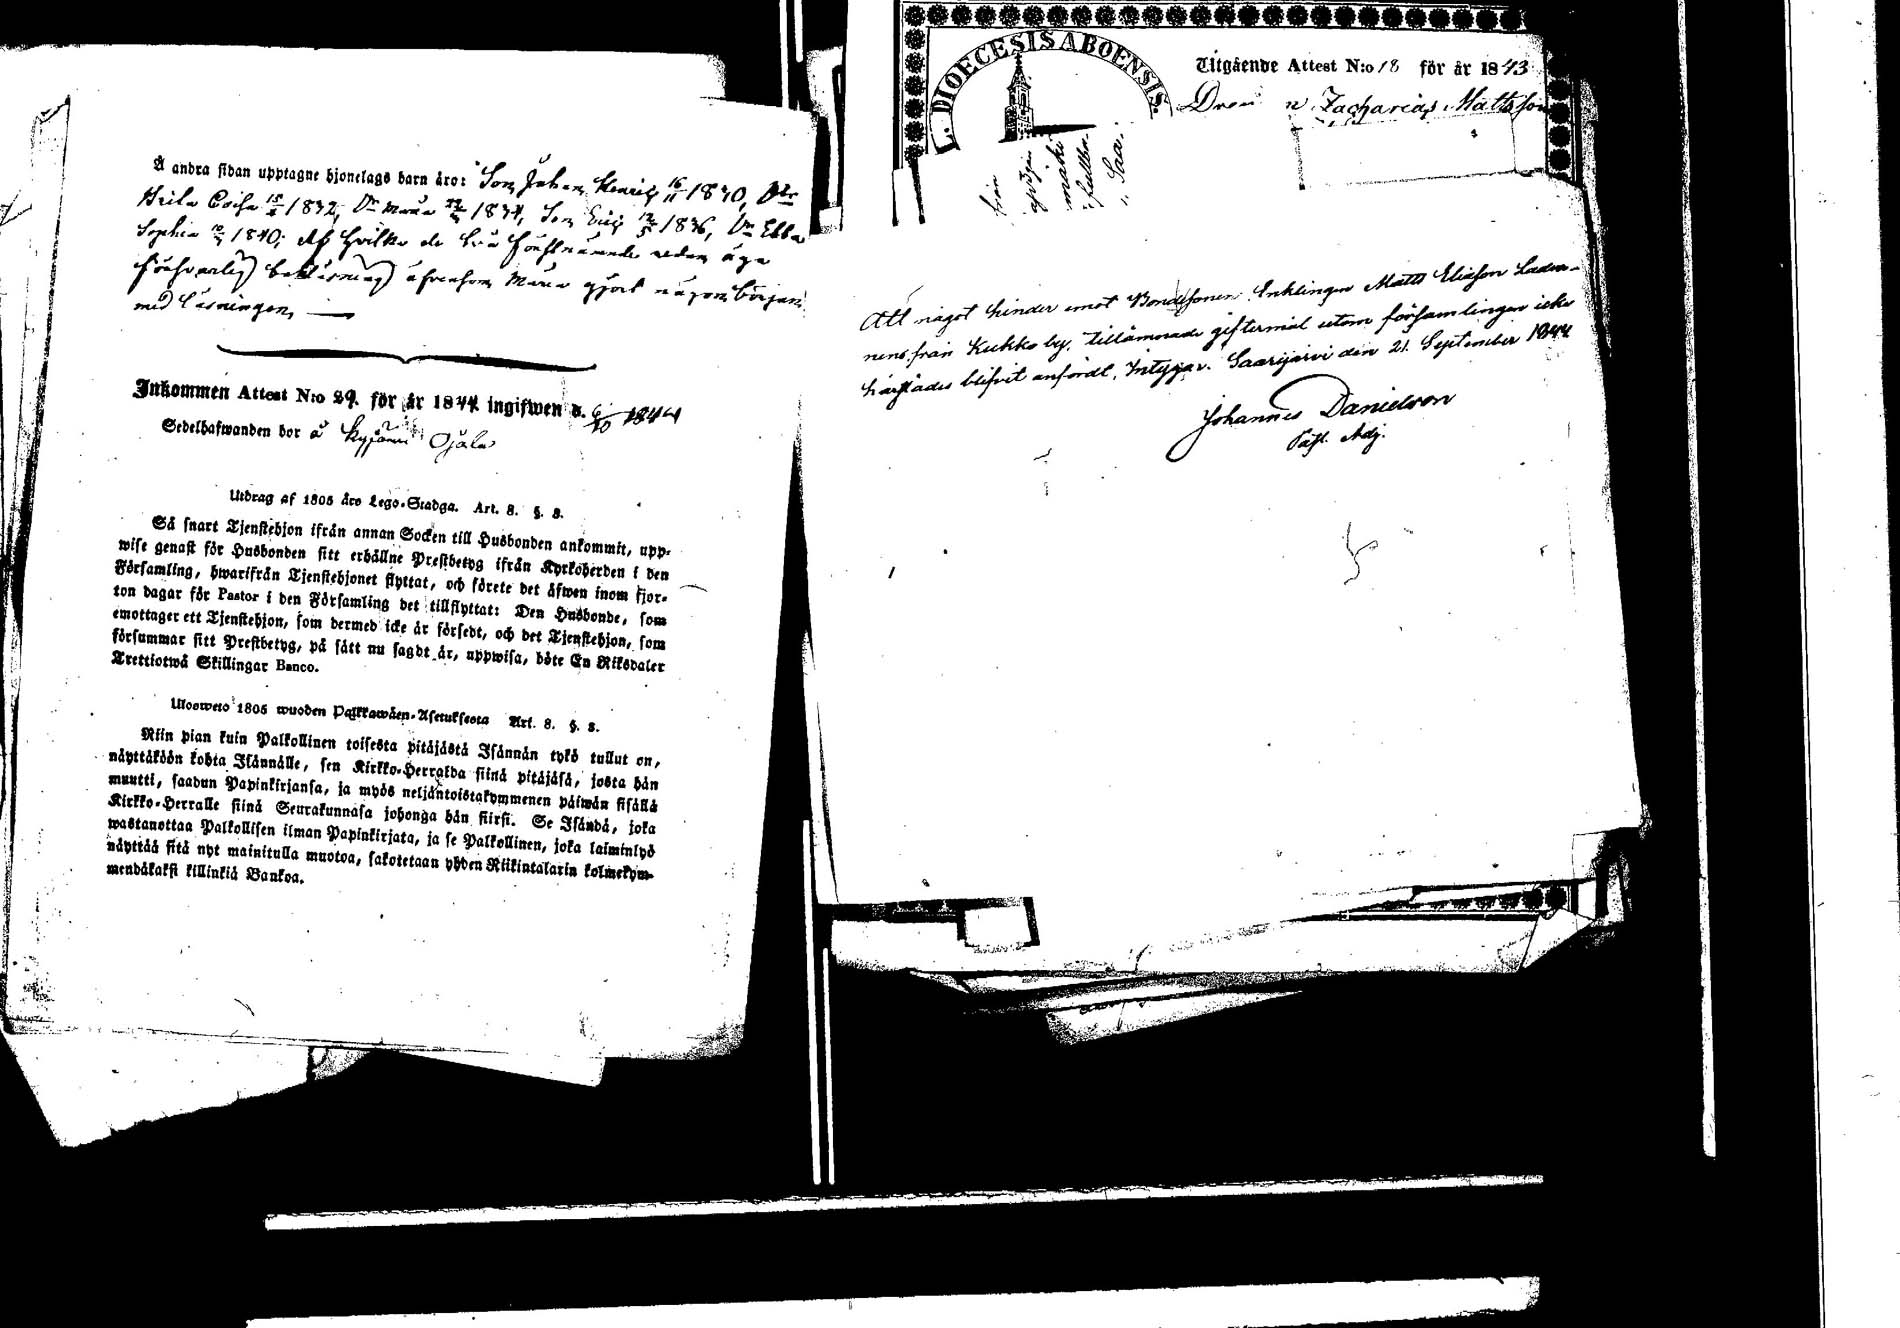 Å andra sidan upptagne hjonelags barn äro: Son Johan Henric 16/11 1830, Dr
1832, Dr Maria 1834, Son Eric 12/5 1836, Dr Ebba
Sophia 1840; Af hvilka de två förstnämnde redan äga
försvarlig Maria gjort någon början
med läsningen,
Inkommen Attest N:o 29. för år 1844 ingifwen d. 6/10 1844
Sedelhafwanden bor å Kyjärvi Ojala
Utdrag af 1805 års Lego-Stadga. Art. 8. §. 3.
Så snart Tjenstehjon ifrån annan Socken till Husbonden ankommit, upp-
wise genast för Husbonden sitt erhållne Prestbetyg ifrån Kyrkoherden i den
Församling, hwarifrån Tjenstehjonet flyttat, och förete det äfwen inom fjor-
ton dagar för Pastor i den Församling det tillflyttat: Den Husbonde, som
emottager ett Tjenstehjon, som dermed icke är försedt, och det Tjenstehjon, som
försummar sitt Prestbetyg, på sätt nu sagdt är, uppwisa, böte En Riksdaler
Trettiotwå Skillingar Banco.
Ulosweto 1805 wuoden Palkkawäen-Asetuksesta Art. 8. §. 3.
Niin pian kuin Palkollinen toisesta pitäjästä Isännän tykö tullut on,
näyttäköön kohta Isännälle, sen Kirkko-Herralda siinä pitäjäsä, josta hän
muutti, saadun Papinkirjansa, ja myös neljäntoistakymmenen päiwän sisällä
Kirkko-Herralle siinä Seurakunnasa johonga hän siirsi. Se Isändä, joka
wastanottaa Palkollisen ilman Papinkirjata, ja se Palkollinen, joka laiminlyö
näyttää sitä nyt mainitulla muotoa, sakotetaan yhden Riikintalarin kolmekym-
mendäkaksi killinkiä Bankoa.
L. DIOECESIS ABOENSIS.
Utgående Attest N:o 18 för år 1843
Zacharias Mattsson
från
mäki
Saa.
Att något hinder emot Bondesonen Enklingen Matts Eliasson Laden-
nens från Kukko by, tillämnade giftermål utom församlingen icke
härstädes blifvit anfördt, Intygar. Saarijärvi den 21 September 1844
Johannes Danielson
Past. Adj.